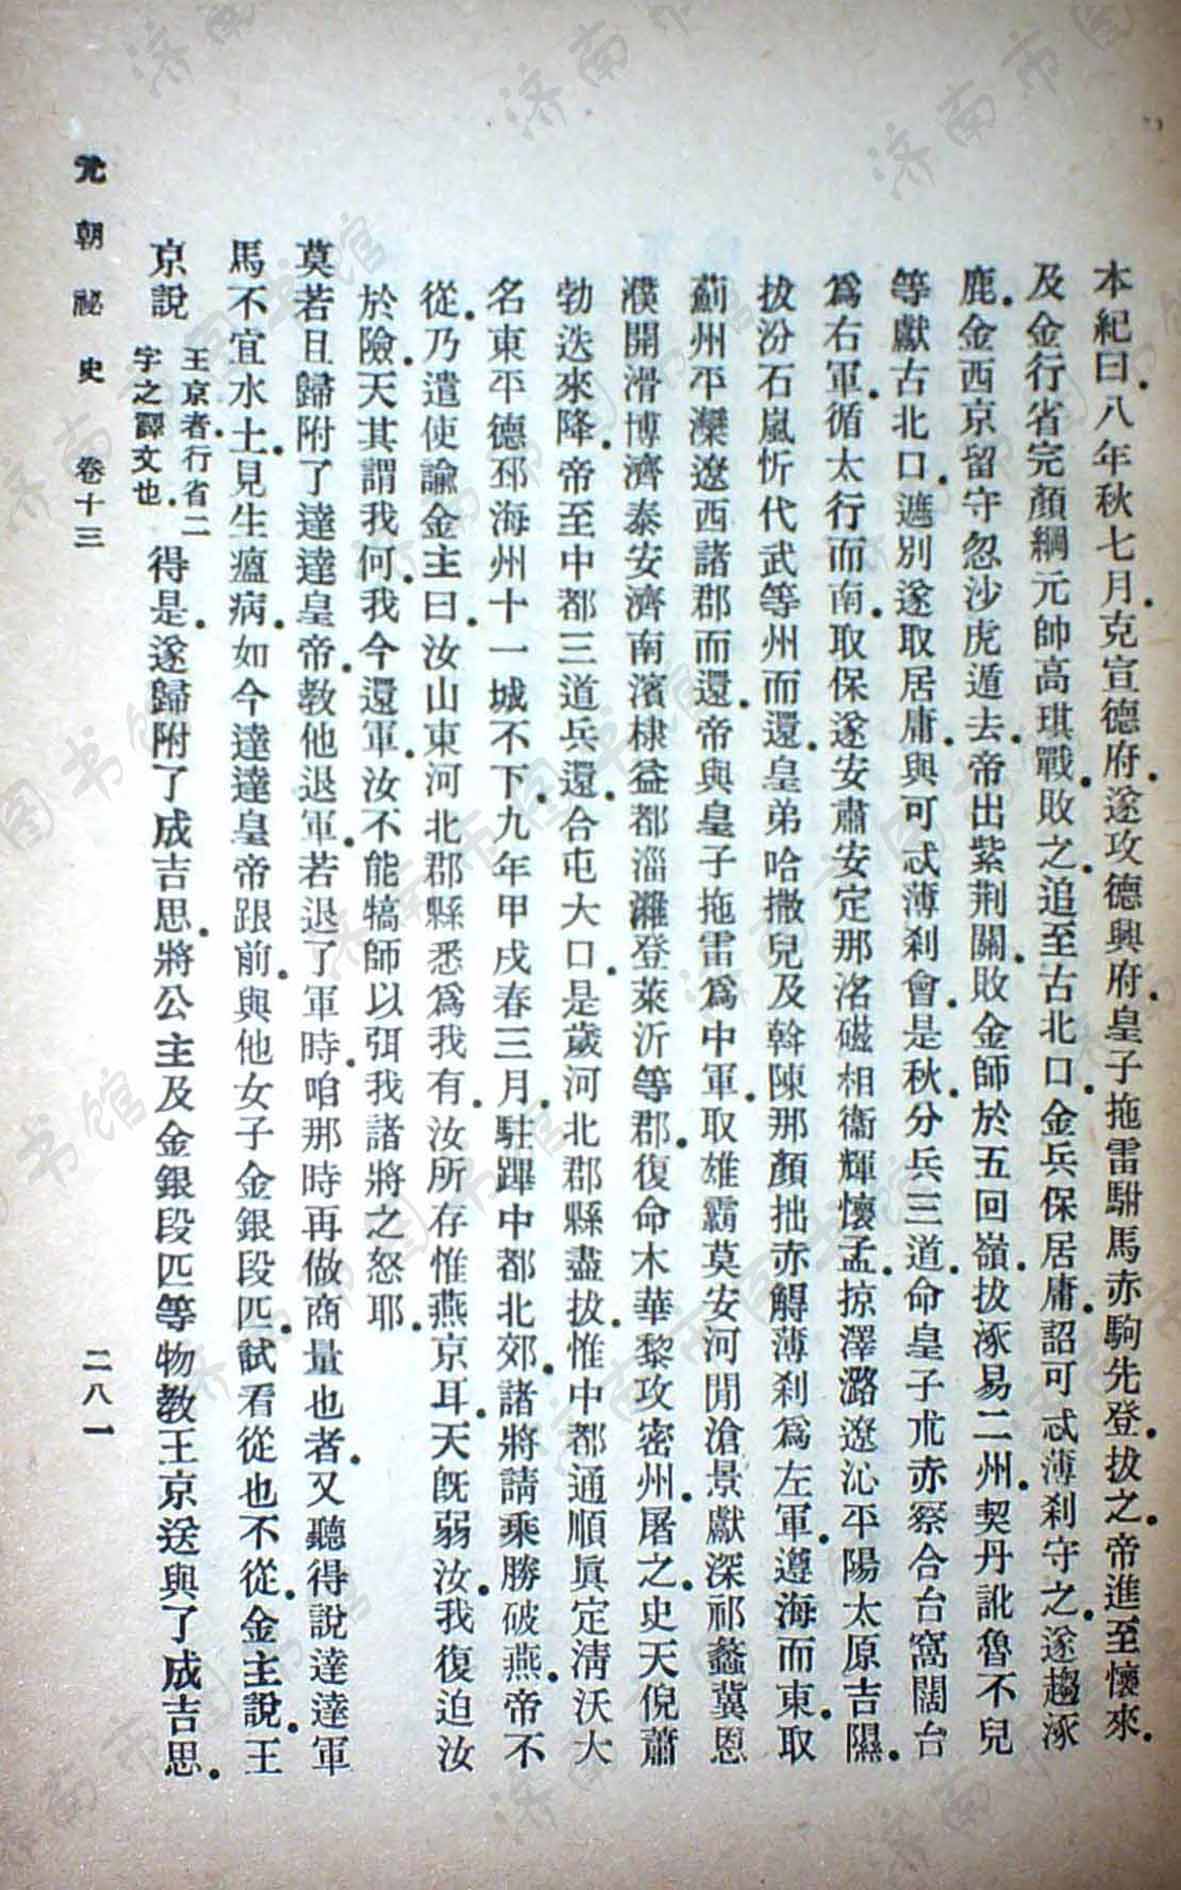 本紀曰．八年秋七月．克宣德府．遂攻德興府．皇子拖雷駙馬赤駒先登．拔之．帝進至懷來．
及金行省完顏綱元帥高琪戰．敗之．追至古北口．金兵保居庸．詔可忒薄剎守之．遂趨涿
鹿．金西京留守忽沙虎遁去．帝出紫荆關．敗金師於五回嶺．拔涿易二州．契丹訛魯不兒
等獻古北口．遮別遂取居庸．與可忒薄剎會．是秋．分兵三道．命皇子朮赤察合台窩闊台
爲右軍．循太行而南．取保遂安肅安定那洺磁相衞輝懷孟．掠澤潞遼沁平陽太原吉隰．
拔汾石嵐忻代武等州而還．皇弟哈撒兒及斡陳那顏拙赤䚟薄剎爲左軍．遵海而東．取
薊州平灤遼西諸郡而還．帝與皇子拖雷爲中軍．取雄霸莫安河閒滄景獻深祁蠡冀恩
濮開滑博濟泰安濟南濱棣益都淄濰登萊沂等郡．復命木華黎攻密州．屠之．史天倪蕭
勃迭來降．帝至中都三道兵還．合屯大口．是歲河北郡縣盡拔．惟中都通順眞定淸沃大
名東平德邳海州十一城不下．九年甲戌春三月．駐蹕中都北郊．諸將請乘勝破燕．帝不
從．乃遣使諭金主曰．汝山東河北郡縣悉爲我有．汝所存惟燕京耳．天旣弱汝．我復迫汝
於險．天其謂我何．我今還軍．汝不能犒師以弭我諸將之怒耶．
莫若且歸附了達達皇帝．敎他退軍．若退了軍時．咱那時再做商量也者．又聽得說達達軍
馬不宜水土．見生瘟病．如今達達皇帝跟前．與他女子金銀段匹．試看從也不從．金主說．王
京說 王京者．行省二字之譯文也． 得是．遂歸附了成吉思．將公主及金銀段匹等物敎王京送與了成吉思．
元朝祕史 卷十三 二八一
济南市图书馆